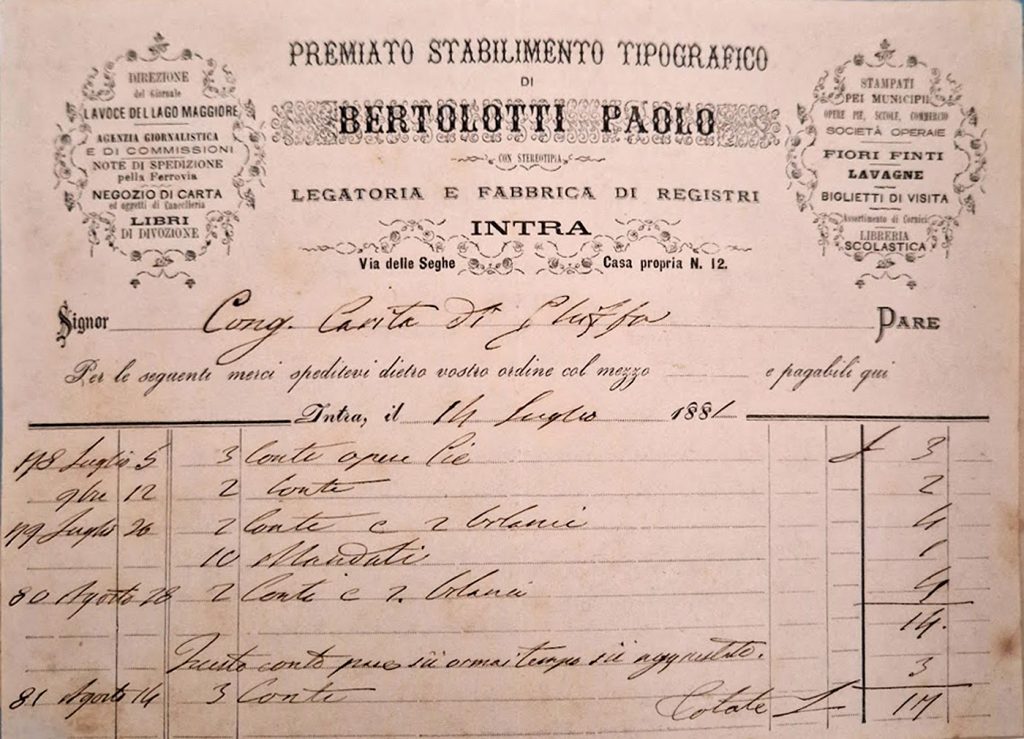 PREMIATO STABILIMENTO TIPOGRAFICO
DI
BERTOLOTTI PAOLO
CON STEREOTIPIA
LEGATORIA E FABBRICA DI REGISTRI
INTRA
Via delle Seghe Casa propria N. 12.
DIREZIONE
del Giornale
LA VOCE DEL LAGO MAGGIORE
AGENZIA GIORNALISTICA
E DI COMMISSIONI
NOTE DI SPEDIZIONE
pella Ferrovia
NEGOZIO DI CARTA
ed oggetti di Cancelleria
LIBRI
DI DIVOZIONE
STAMPATI
PEI MUNICIPII
OPERE PIE, SCUOLE, COMMERCIO
SOCIETÀ OPERAIE
FIORI FINTI
LAVAGNE
BIGLIETTI DI VISITA
Assortimento di Cornici
LIBRERIA
SCOLASTICA
Signor Cong. Carita di PARE
Per le seguenti merci speditevi dietro vostro ordine col mezzo e pagabili qui
Intra, il 14 Luglio 1881
78 Luglio 5 3 Conti opere Pie 3
9bre 12 2 Conti 2
79 Luglio 26 2 Conti e 2 bilanci 4
10 Mandati 1
80 Agosto 28 2 Conti e 2 bilanci 4
14.
Questo conto pare sii ormai tempo sii aggiustato.
81 Agosto 14 3 Conti 3
Totale 17